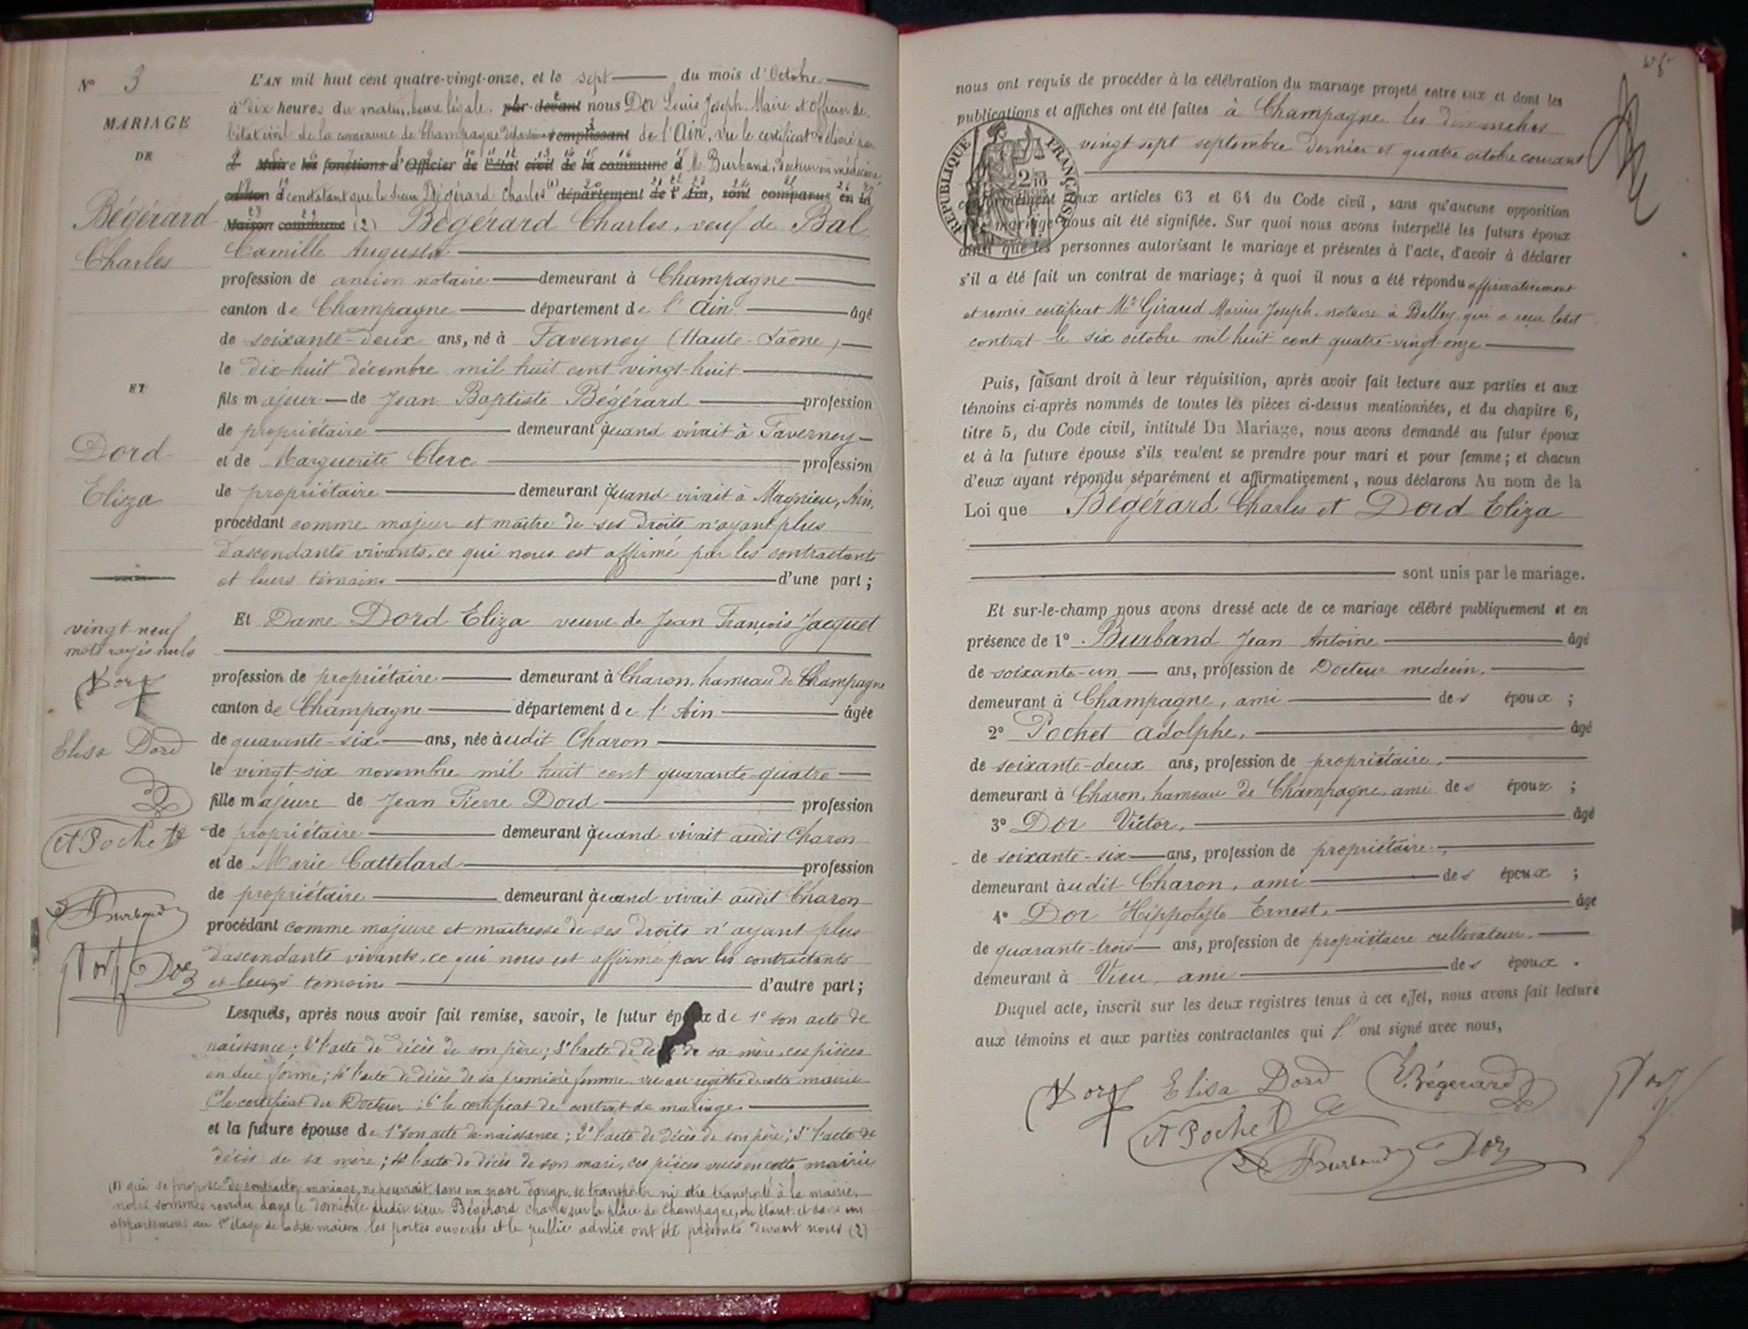 N° 3
MARIAGE
DE
Bégérard
Charles
ET
Dord
Eliza
vingt neuf
mots rayés nuls
Elisa Dord
A Pochet
Burband
Dor
L'AN mil huit cent quatre-vingt-onze, et le sept du mois d'Octobre
à dix heures du matin, heure légale, par devant nous Dor Louis Joseph, Maire et Officier de
l'état civil de la commune de Champagne remplissant de l'Ain, vu le certificat délivré par
Maire les fonctions d'Officier de l'état civil de la commune d Mr Burband, Docteur en médecine
canton d constatant que le sieur Bégérard Charles (1) département de l'Ain, sont comparus en la
Maison commune (2) Bégérard Charles, veuf de Bal
Camille Augusta
profession de ancien notaire demeurant à Champagne
canton de Champagne département de l'Ain âgé
de soixante-deux ans, né à Faverney (Haute-Saône)
le dix-huit décembre mil huit cent vingt-huit
fils majeur de Jean Baptiste Bégérard profession
de propriétaire demeurant quand vivait à Faverney
et de Marguerite Clerc profession
de propriétaire demeurant quand vivait à Magnieu, Ain,
procédant comme majeur et maître de ses droits n'ayant plus
d'ascendants vivants, ce qui nous est affirmé par les contractants
et leurs témoins d'une part;
Et Dame Dord Eliza veuve de Jean François Jacquet
profession de propriétaire demeurant à Charon, hameau de Champagne
canton de Champagne département de l'Ain âgée
de quarante-six ans, née audit Charon
le vingt-six novembre mil huit cent quarante-quatre
fille majeure de Jean Pierre Dord profession
de propriétaire demeurant quand vivait audit Charon
et de Marie Cattelard profession
de propriétaire demeurant quand vivait audit Charon
procédant comme majeure et maîtresse de ses droits n'ayant plus
d'ascendants vivants, ce qui nous est affirmé par les contractants
et leurs témoins d'autre part;
Lesquels, après nous avoir fait remise, savoir, le futur époux de 1° son acte de
naissance; 2° l'acte de décès de son père; 3° l'acte de décès de sa mère, ces pièces
en due forme; 4° l'acte de décès de sa première femme vu au registre de cette mairie
5° le certificat du Docteur; 6° le certificat de contrat de mariage
et la future épouse de 1° son acte de naissance; 2° l'acte de décès de son père; 3° l'acte de
décès de sa mère; 4° l'acte de décès de son mari, ces pièces vues en cette mairie
(1) qui se propose de contracter mariage, ne pourrait, sans un grave danger, se transporter ni être transporté à la mairie,
nous sommes rendu dans le domicile dudit sieur Bégérard Charles sur la place de Champagne, où étant et dans un
appartement au 1er étage de ladite maison, les portes ouvertes et le public admis ont été présents devant nous (2)
nous ont requis de procéder à la célébration du mariage projeté entre eux et dont les
publications et affiches ont été faites à Champagne les dimanches
vingt sept septembre dernier et quatre octobre courant
RÉPUBLIQUE FRANÇAISE
conformément aux articles 63 et 64 du Code civil, sans qu'aucune opposition
mariage nous ait été signifiée. Sur quoi nous avons interpellé les futurs époux
ainsi que les personnes autorisant le mariage et présentes à l'acte, d'avoir à déclarer
s'il a été fait un contrat de mariage; à quoi il nous a été répondu affirmativement
et remis certificat Me Giraud Marius Joseph, notaire à Belley qui a reçu ledit
contrat le six octobre mil huit cent quatre-vingt onze
Puis, faisant droit à leur réquisition, après avoir fait lecture aux parties et aux
témoins ci-après nommés de toutes les pièces ci-dessus mentionnées, et du chapitre 6,
titre 5, du Code civil, intitulé Du Mariage, nous avons demandé au futur époux
et à la future épouse s'ils veulent se prendre pour mari et pour femme; et chacun
d'eux ayant répondu séparément et affirmativement, nous déclarons Au nom de la
Loi que Bégérard Charles et Dord Eliza
sont unis par le mariage.
Et sur-le-champ nous avons dressé acte de ce mariage célébré publiquement et en
présence de 1° Burband Jean Antoine âgé
de soixante-un ans, profession de Docteur médecin,
demeurant à Champagne, ami des époux;
2° Pochet Adolphe, âgé
de soixante-deux ans, profession de propriétaire,
demeurant à Charon, hameau de Champagne, ami des époux;
3° Dor Victor, âgé
de soixante-six ans, profession de propriétaire,
demeurant audit Charon, ami des époux;
4° Dor Hippolyte Ernest, âgé
de quarante-trois ans, profession de propriétaire cultivateur,
demeurant à Vieu, ami des époux.
Duquel acte, inscrit sur les deux registres tenus à cet effet, nous avons fait lecture
aux témoins et aux parties contractantes qui l'ont signé avec nous,
Elisa Dord Bégérard
A Pochet
Burband Dor